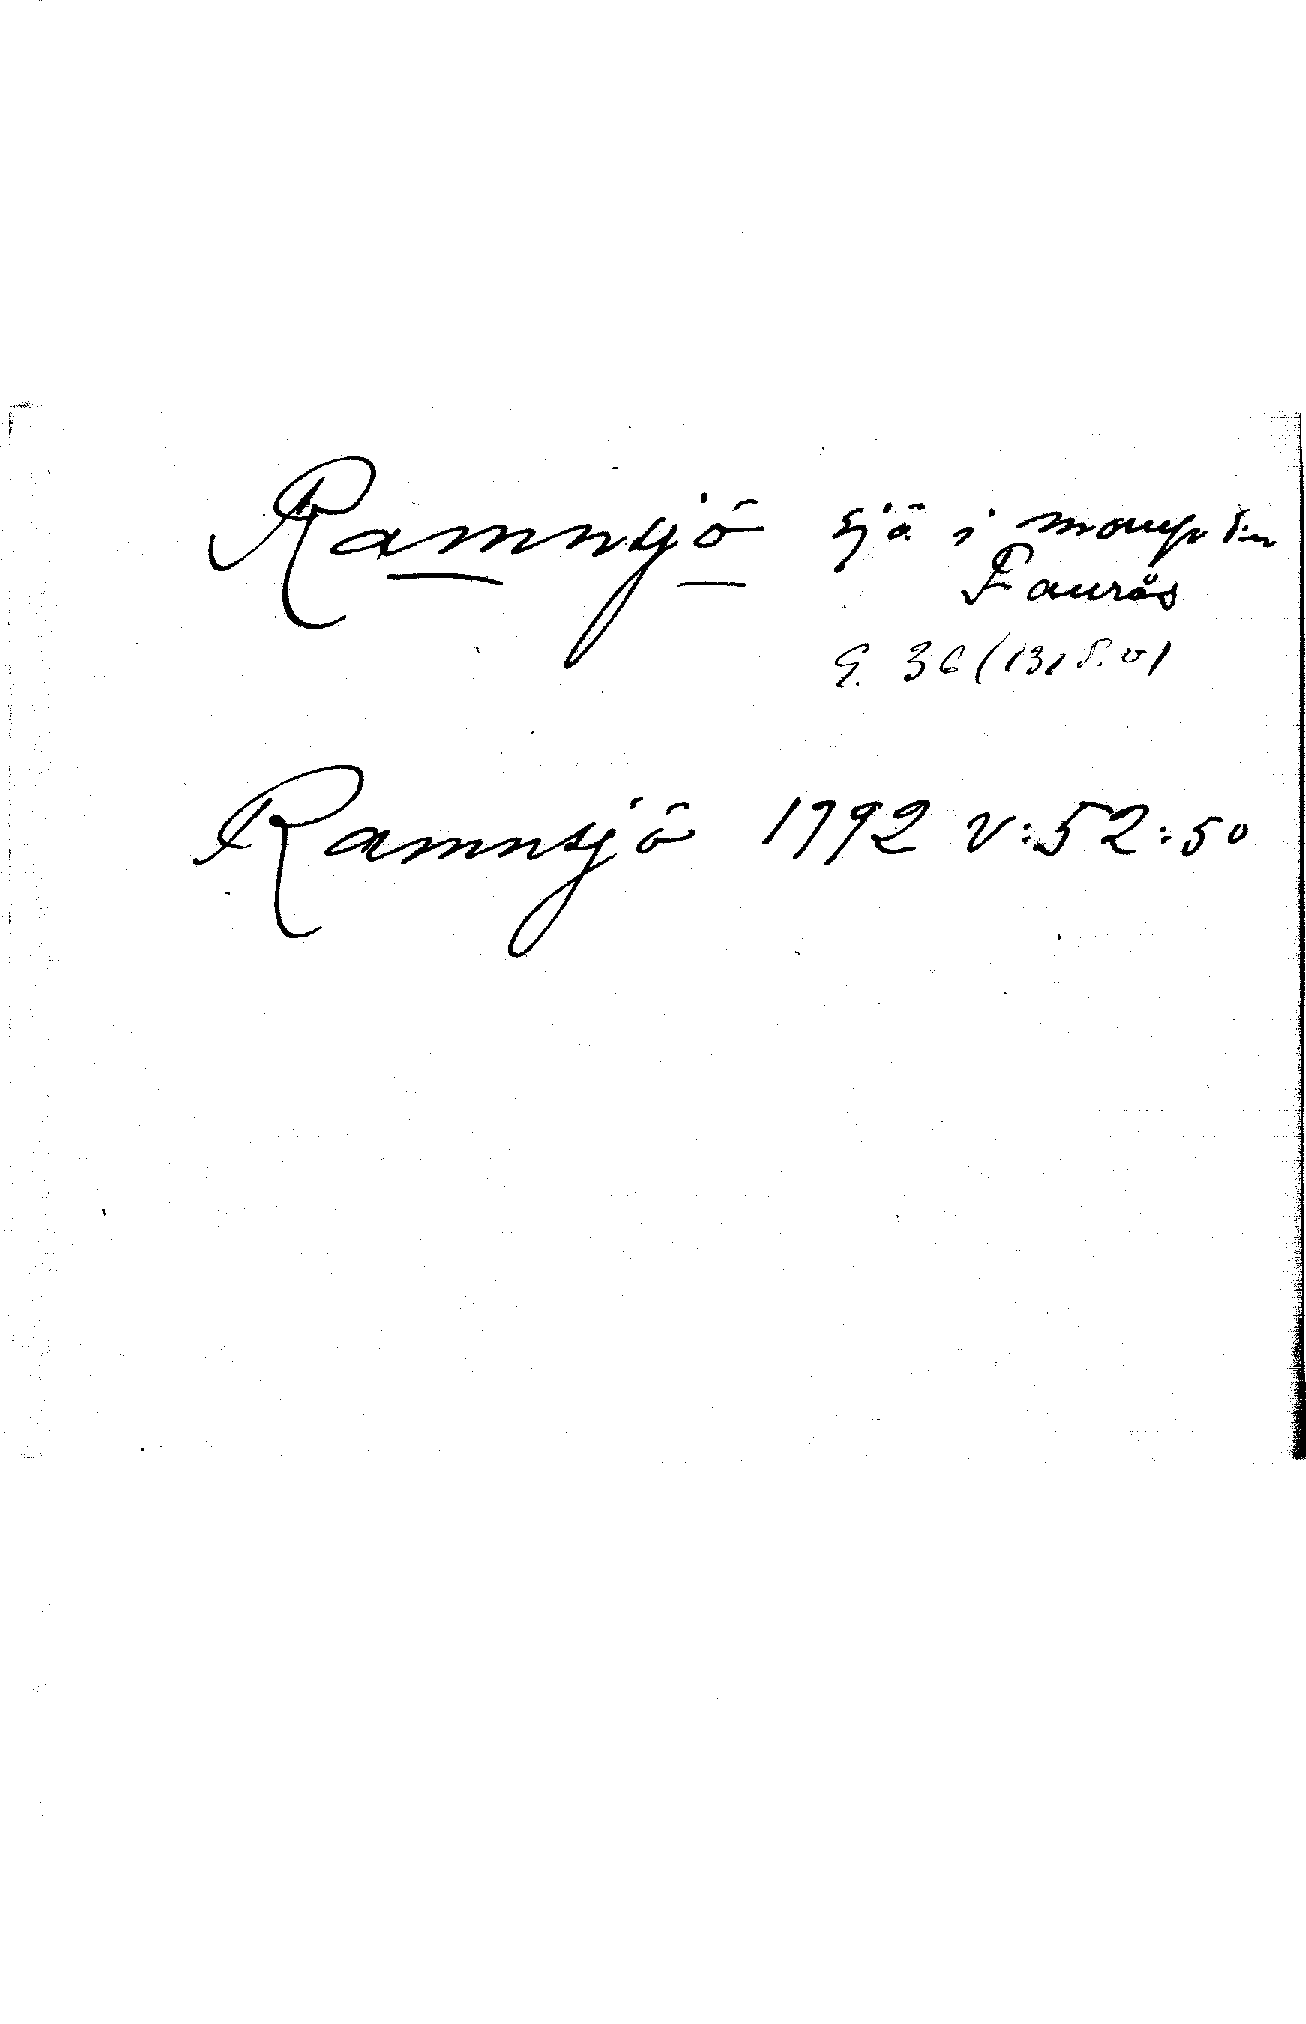 Ramnsjö sjö i
Faurås
G. 36 (131 S.O)
Ramnsjö 1792 V:52:50